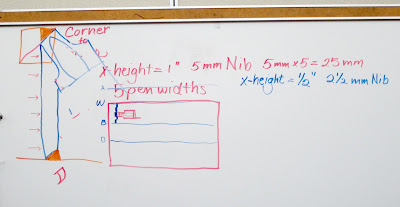 Corner
to
x-height = 1" 5 mm Nib 5mm x 5 = 25 mm
5 pen widths
x-height = 1/2" 2 1/2 mm Nib
x
W
B
D
D